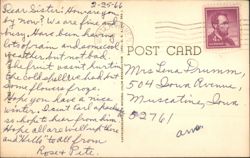 2-25-66
Dear Sister: How are you
by now? We are fine and
busy. Have been having
lots of rain and some cool
weather but not bad.
The fruit wasn't hurt in
the cold spell we had but
some flowers froze.
Hope you have a nice
winter. Don't Carl
so hope to hear from him.
Hope all are well up there
and "Hello" to all from
Rose & Pete.
POST CARD
Mrs Lena Drumm
504 Iowa Avenue,
Muscatine, Iowa
52761